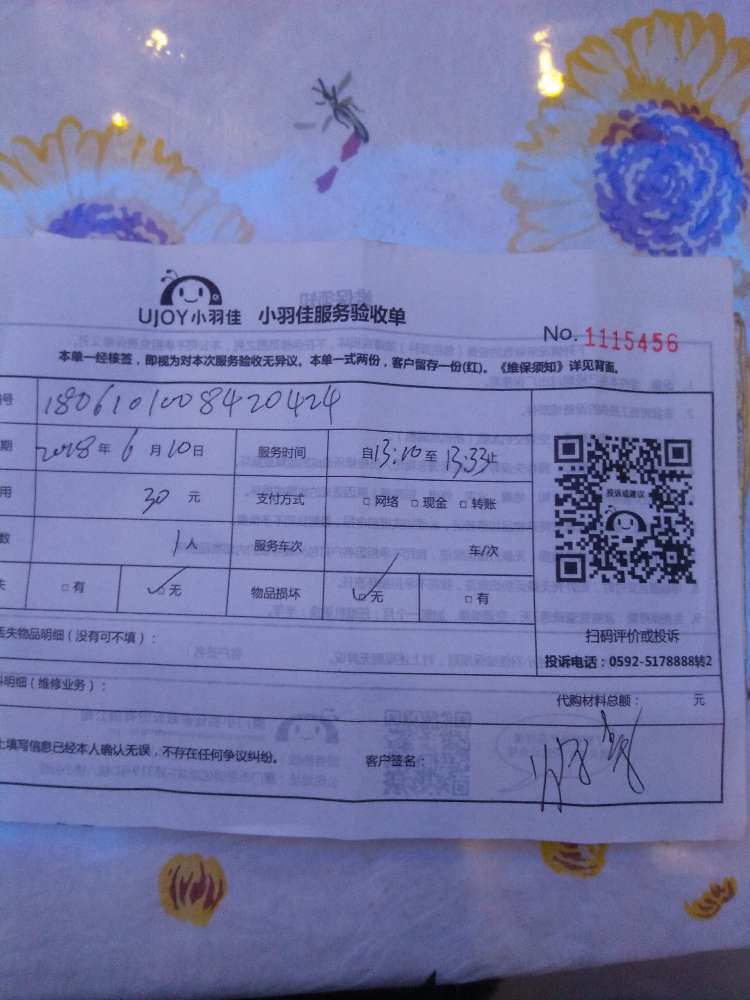 UJOY小羽佳 小羽佳服务验收单
No. 1115456
本单一经核签，即视为对本次服务验收无异议。本单一式两份，客户留存一份(红)。《维保须知》详见背面。
号 1806101008420424
期 2018年 6月10日 服务时间 自13:10至13:33止
用 30元 支付方式 □网络 □现金 □转账
数 1人 服务车次 车/次
失 □有 ✓□无 物品损坏 ✓□无 □有
投诉或建议
扫码评价或投诉
投诉电话：0592-5178888转2
丢失物品明细（没有可不填）：
料明细（维修业务）：
代购材料总额： 元
上填写信息已经本人确认无误，不存在任何争议纠纷。 客户签名：